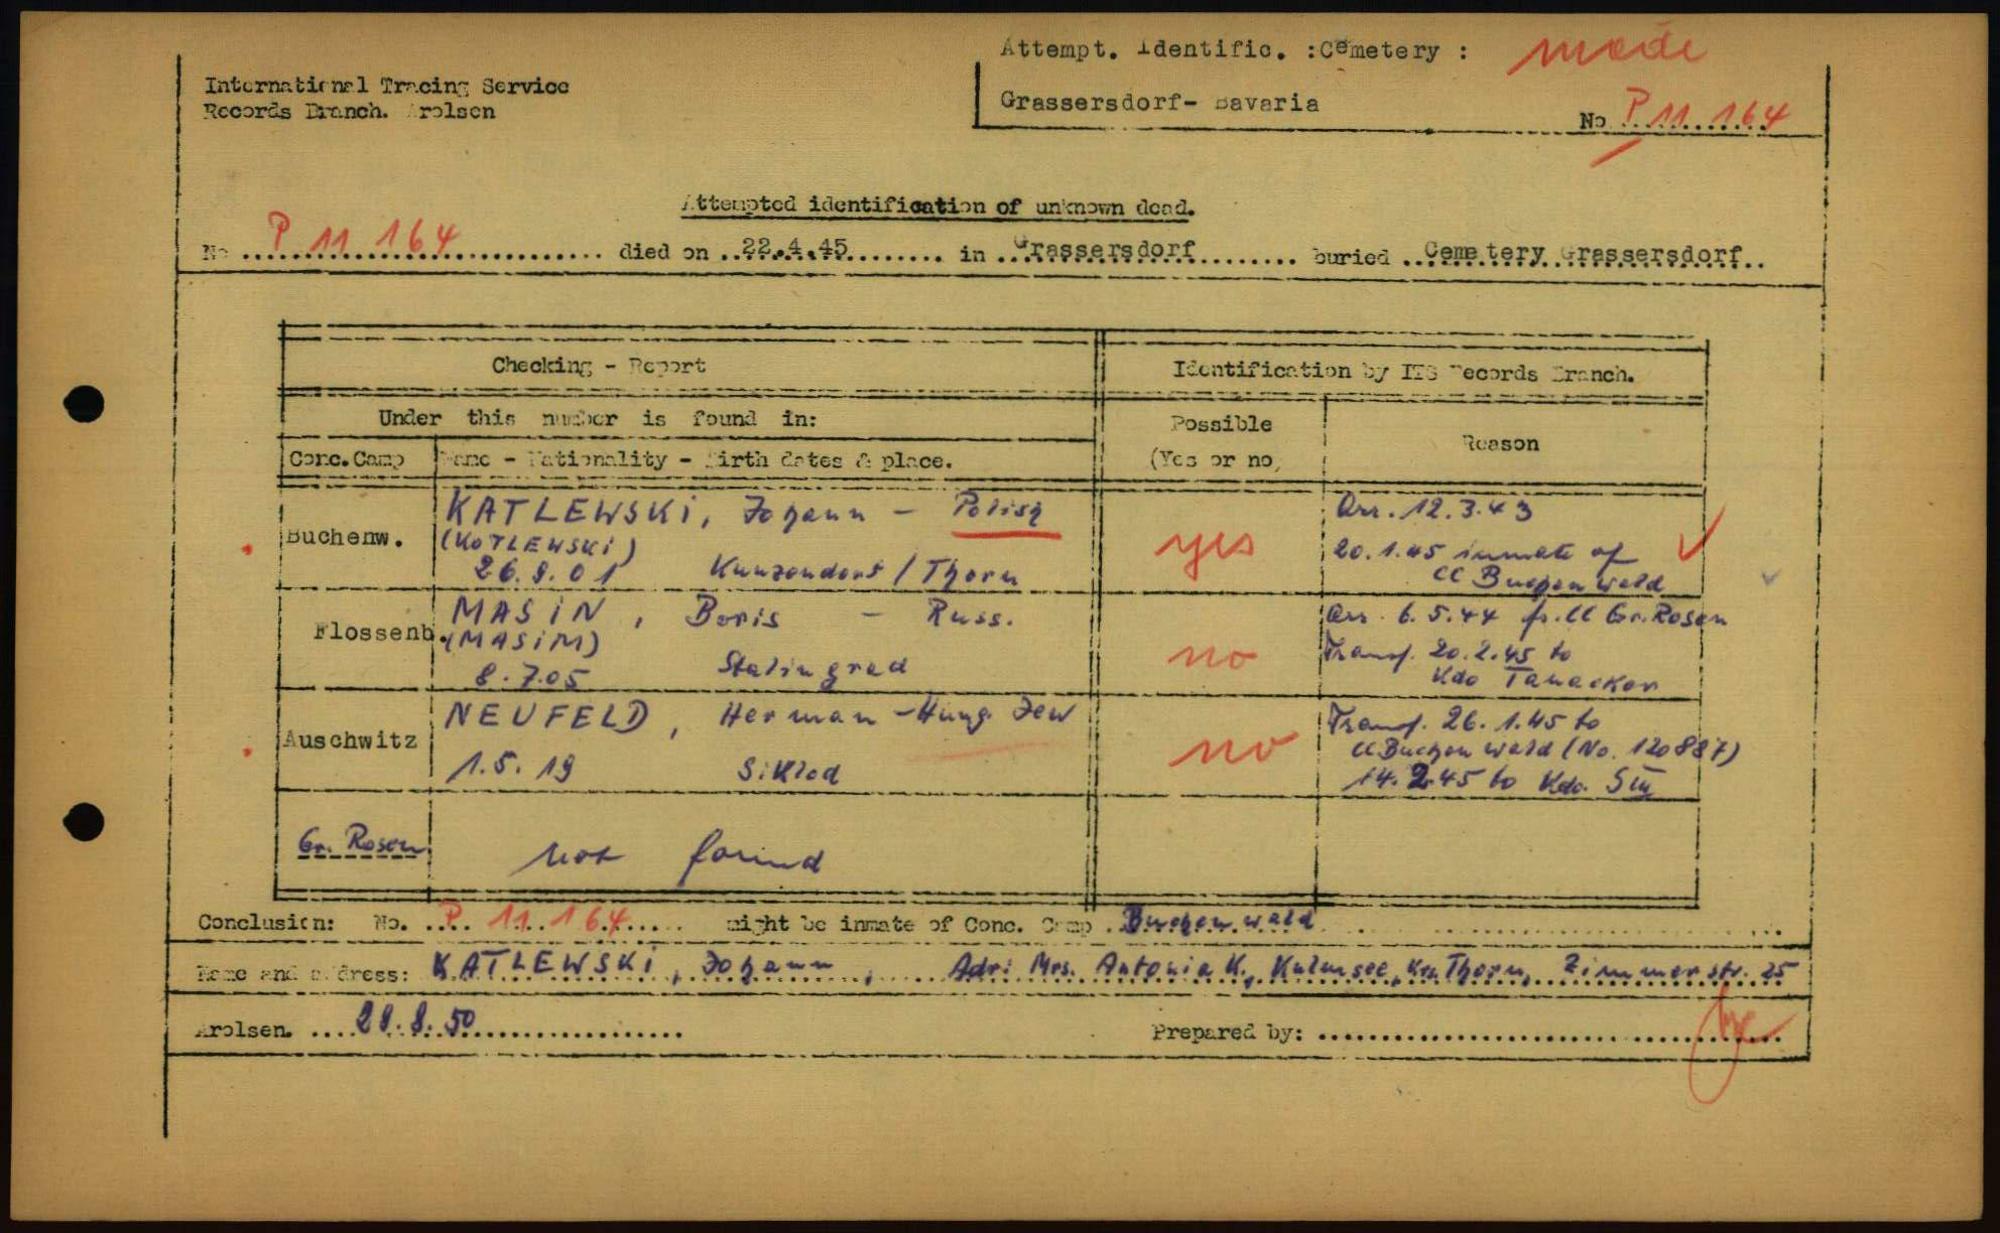 Attempt. Identific. :Cemetery : made
International Tracing Service
Records Branch. Arolsen
Grassersdorf- Bavaria
No P 11 164
Attempted identification of unknown dead.
No P 11 164 died on 22.4.45 in Grassersdorf buried Cemetery Grassersdorf
Checking - Report
Identification by ITS Records Branch.
Under this number is found in:
Possible
(Yes or no)
Reason
Conc.Camp Name - Nationality - Birth dates & place.
Buchenw.
KATLEWSKI, Johann - Polish
(KOTLEWSKI)
26.8.01 Kunzendorf / Thorn
yes
Arr. 12.3.43
20.1.45 inmate of
CC Buchenwald
Flossenb.
MASIN, Boris - Russ.
(MASIM)
8.7.05 Stalingrad
no
Arr. 6.5.44 fr. CC Gr. Rosen
Transf. 20.2.45 to
Kdo
Auschwitz
NEUFELD, Herman - Hung. Jew
1.5.19 Siklod
no
Transf. 26.1.45 to
CC Buchenwald (No. 120887)
14.2.45 to Kdo. S III
Gr. Rosen
not found
Conclusion: No. P. 11 164 might be inmate of Conc. Camp Buchenwald
Name and address: KATLEWSKI, Johann, Adr: Mrs. Antonia K., Kulmsee, Krs. Thorn, Zimmerstr. 25
Arolsen. 28.8.50
Prepared by: